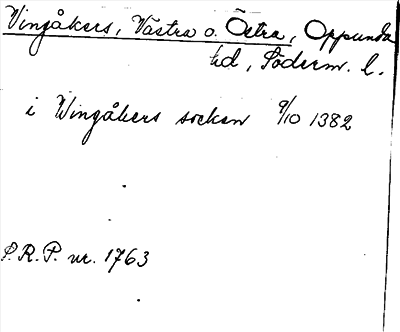 Vingåkers, Västra o. Östra, Oppunda
hd, Söderm. l.
i Wingåkers socken 9/10 1382
S.R.P. nr. 1763